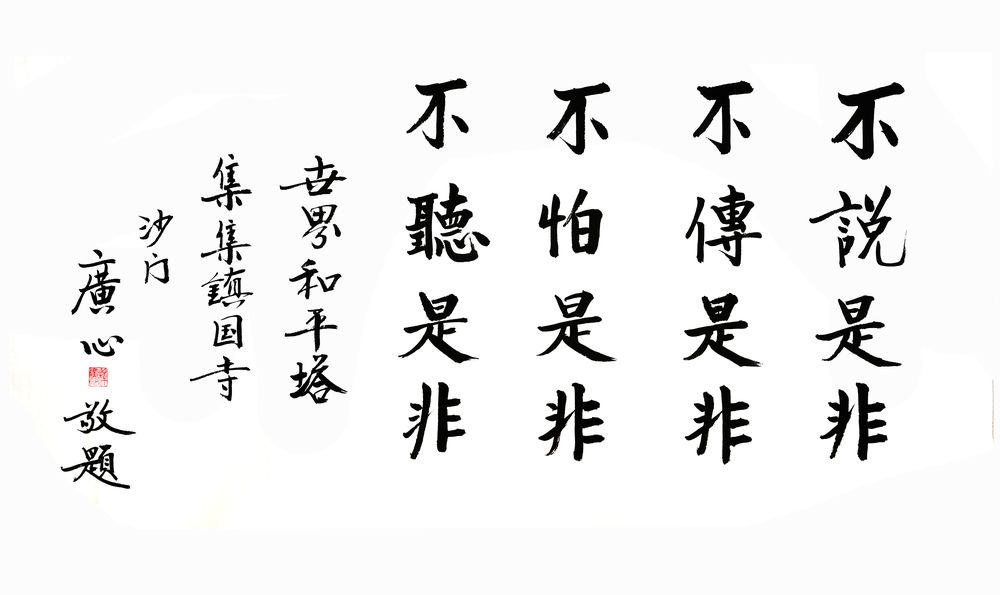 不説是非
不傳是非
不怕是非
不聽是非
世界和平塔
集集鎮国寺
沙门
廣心
敬題